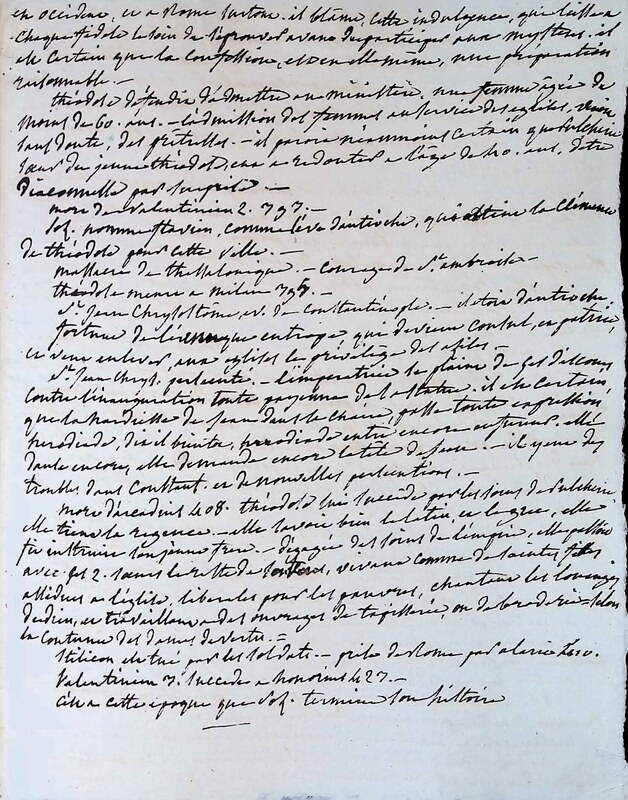 en occident, et a Rome surtout. il blâme, cette indulgence, qui laisse a
chaque fidele le soin de s'éprouver avant de participer aux mysteres. il
est certain que la confession, est en elle meme, une préparation
raisonnable. —
théodose défendit d'admettre au ministère, une femme âgée de
moins de 60. ans. — l'admission des femmes au service des eglises,
sans doute, des prêtresses. — il parait néanmoins certain que
soeur du jeune théodose, a l'age de 40. ans, d'etre
Diaconesse par surprise. —
mort de Valentinien 2.
Soz. nomme flavien, comme évêque d'antioche, qui obtint la Clémence
de théodose pour cette ville. —
massacre de thessalonique. — courage de St. ambroise —
théodose meurt a milan
St. Jean Chrysostome, ev. de Constantinople. — il etoit d'antioche.
fortune de l'eunuque eutrope, qui devient consul, et patrice,
et veut enlever, aux eglises le privilège des asiles. —
St. Jean Chrys. persécuté. — l'imperatrice se plaint de ses discours
contre l'inauguration toute payenne de sa statue. il est certain,
que la hardiesse de Jean dans la chaire, passe toute expression,
herodiade, disait-il, herodiade entre encore en fureur, elle
danse encore, elle demande encore la tete de Jean. — il y eut des
troubles dans Constant. et de nouvelles persécutions. —
mort d'arcadius 408. théodose lui succede par les soins de Pulcherie
elle tient la regence. — elle savoit bien le latin, et le grec, elle
fit instruire son jeune frere. — dégagée des soins de l'empire, elle passoit
avec ses 2. soeurs le reste de vivant comme de saintes filles
assidues a l'église, liberales pour les pauvres, chantant les louanges
de dieu, et travaillant a des ouvrages de tapisserie, ou de broderie selon
la coutume des dames de vertu. =
Stilicon est tué par les soldats. — prise de Rome par alaric 410.
Valentinien 3. succede a honorius 427. —
c'est a cette epoque que Soz. termine son histoire